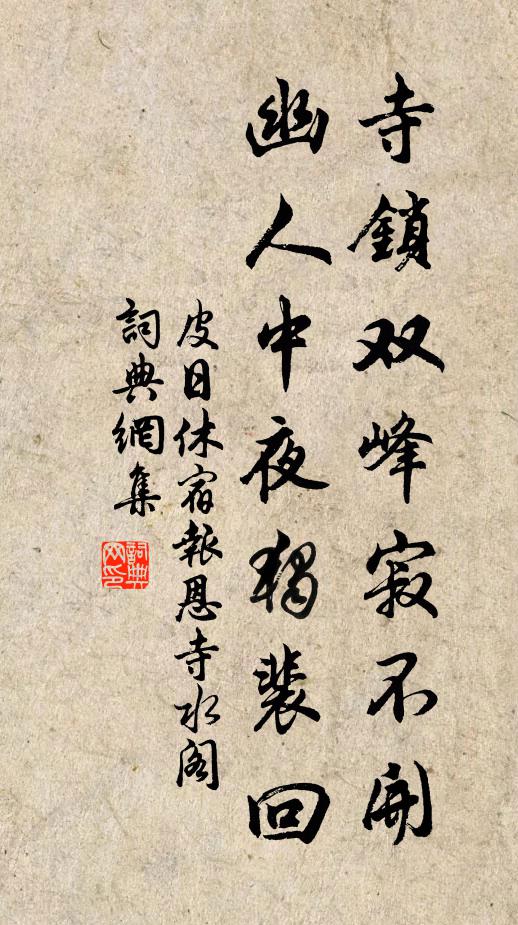 寺鎖双峰寂不開
幽人中夜獨裴回
皮日休宿報恩寺水閣
詞典網集
詞典
网印